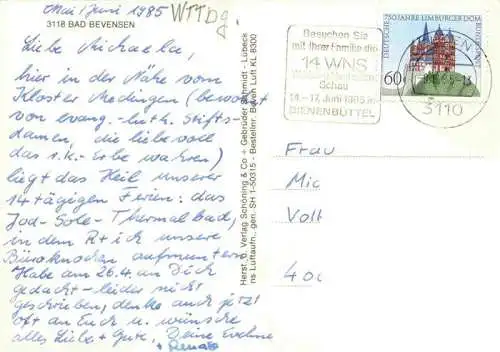 Mai/Juni 1985
WTTDg
3118 BAD BEVENSEN
Liebe Michaela,
hier in der Nähe vom
Kloster Medingen (bewohnt
von evang.-luth. Stifts-
damen, die liebevoll
das r.k.-Erbe wahren)
liegt das Heil unserer
14 tägigen Ferien: das
Jod-Sole-Thermalbad,
in dem R + ich unsere
Büroknochen aufmuntern.
Habe am 26.4. an Dich
gedacht - leider nicht
geschrieben, denke auch jetzt
oft an Euch u. wünsche
alles Liebe + Gute, Deine Evchne
+ Renate
Herst. u. Verlag Schöning & Co + Gebrüder Schmidt - Lübeck
ns Luftaufn., gen. SH 1-50315 - Bestellnr. Baven Luft KL 8300
Besuchen Sie
mit Ihrer Familie die
14 WNS
Schau
14.-17. Juni 1985 in
BIENENBÜTTEL
DEUTSCHE
750 JAHRE LIMBURGER DOM
60
3110
Frau
Mic
Volt
400